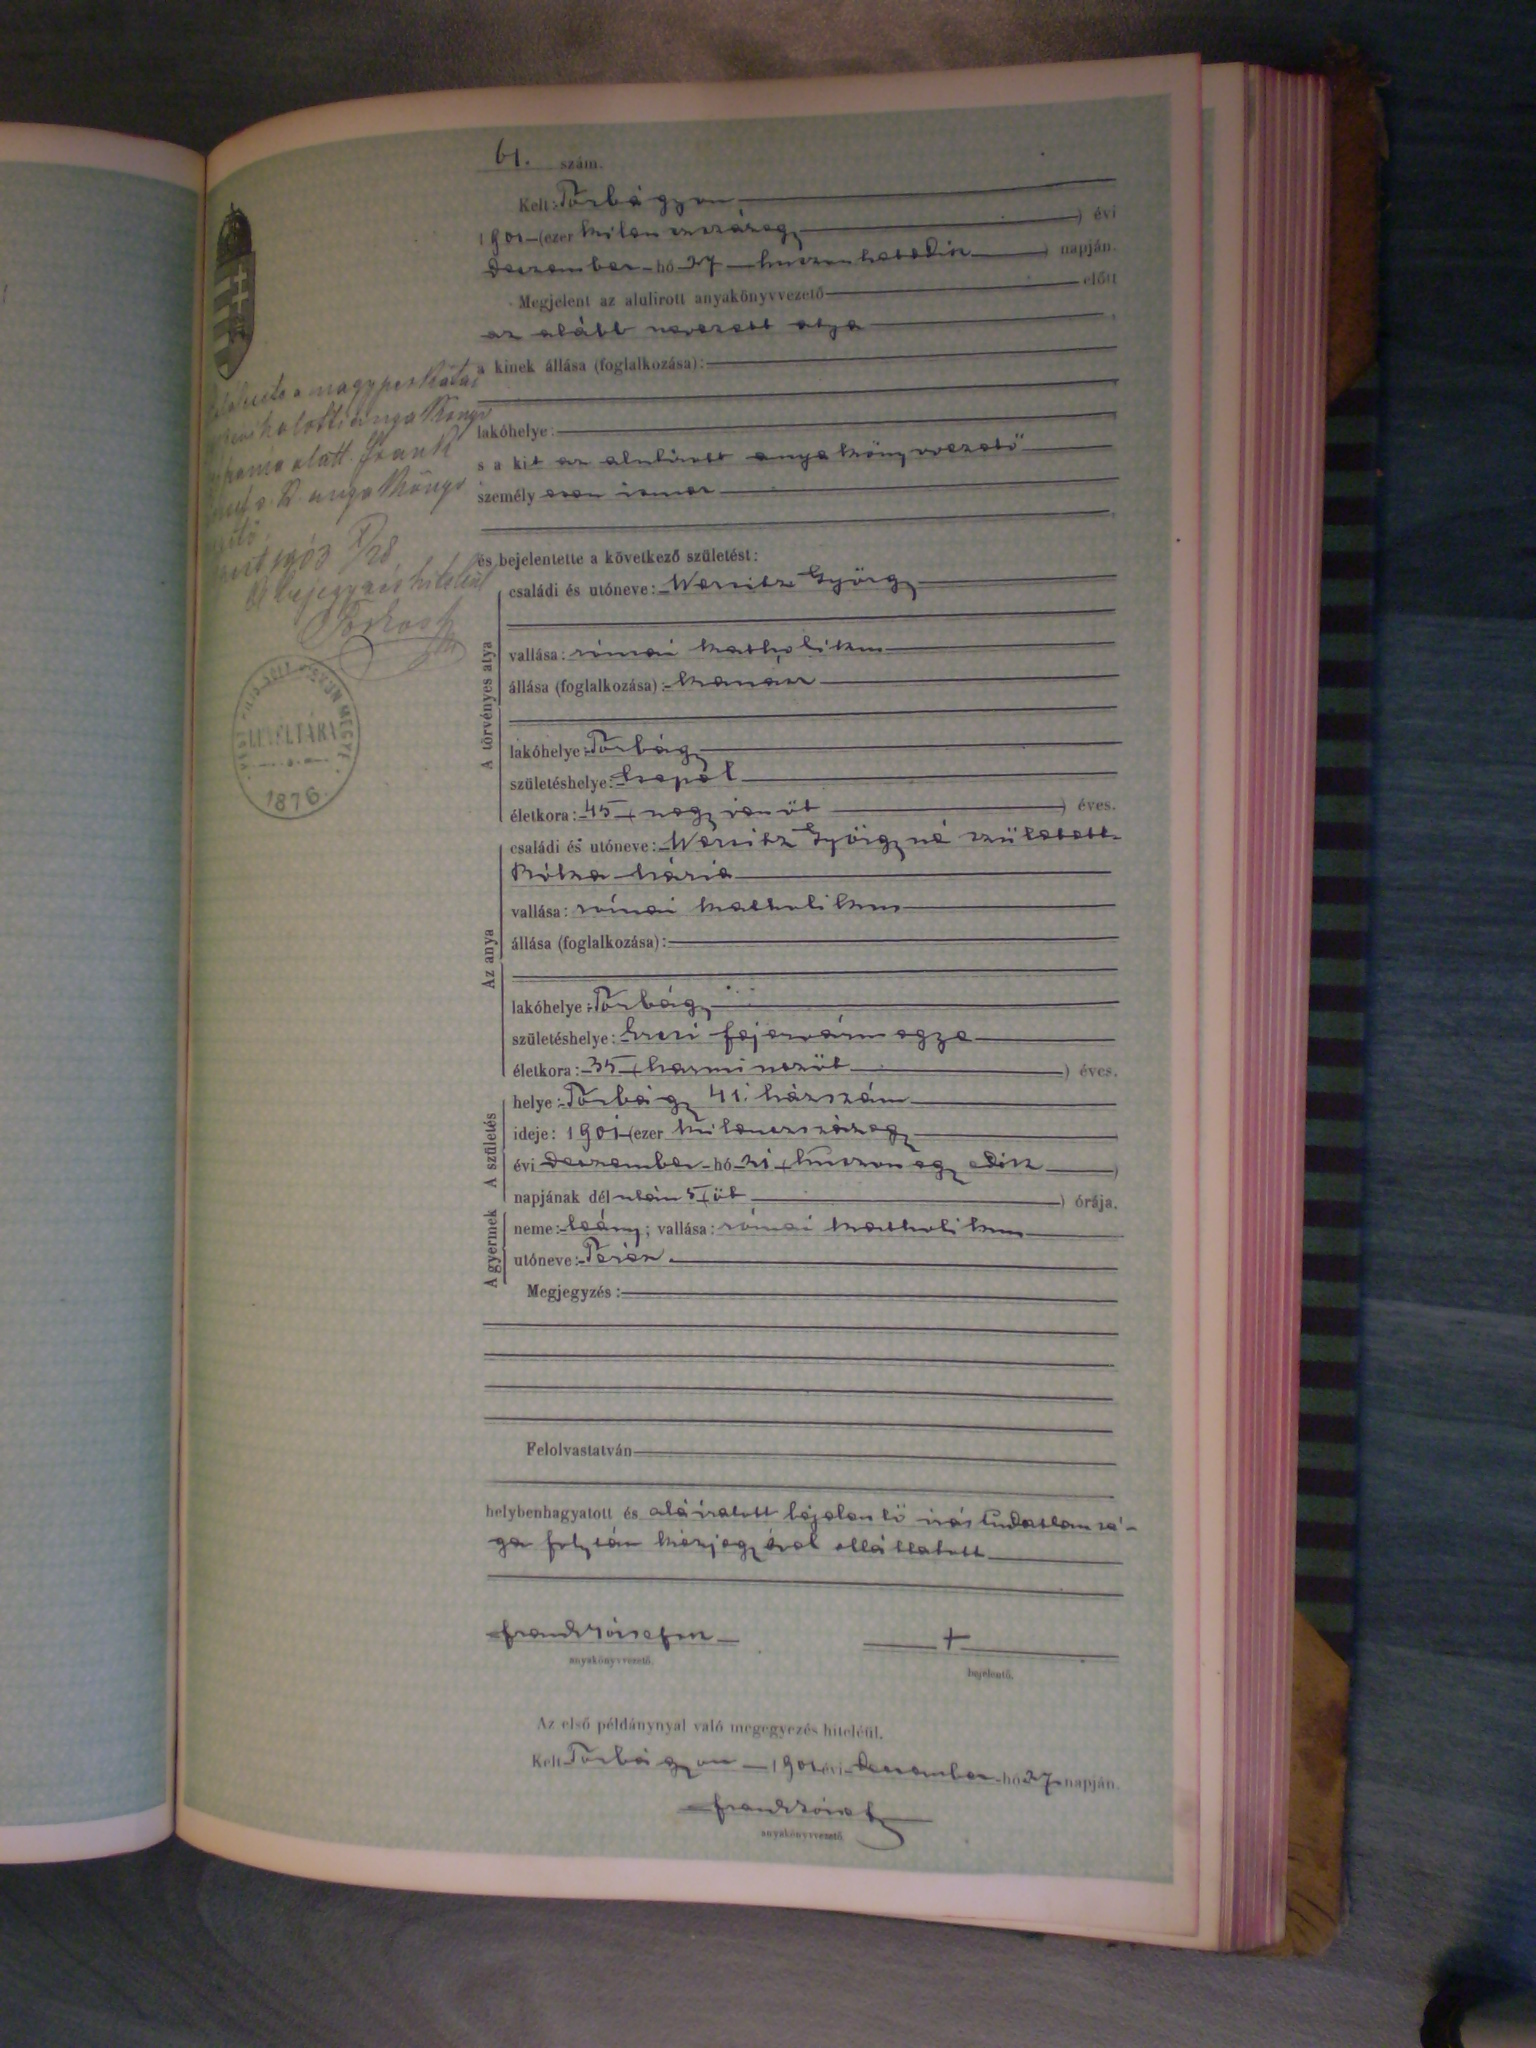 61. szám.
Kelt: Törbágyon
1901 (ezer kilenczszázegy) évi
deczember hó 27 huszonhetedik) napján.
Megjelent az alulirott anyakönyvvezető előtt
az alább nevezett atya
a kinek állása (foglalkozása):
lakóhelye:
s a kit az alulirott anyakönyvvezető
személyesen ismer
és bejelentette a következő születést:
A törvényes atya
családi és utóneve: Wersitz György
vallása: római katholikus
állása (foglalkozása): kanász
lakóhelye: Törbágy
születéshelye: Csepel
életkora: 45 (negyvenöt) éves.
Az anya
családi és utóneve: Wersitz Györgyné született
Mária
vallása: római katholikus
állása (foglalkozása):
lakóhelye: Törbágy
születéshelye: Ercsi fejérvármegye
életkora: 35 (harminczöt) éves.
A születés
helye: Törbágy 41. házszám
ideje: 1901 (ezer kilenczszázegy
évi deczember hó 21 (huszonegyedik)
napjának délután 5 (öt) órája.
A gyermek
neme: leány; vallása: római katholikus
utóneve: Teréz.
Megjegyzés:
Felolvastatván
helybenhagyatott és aláiratott bejelentő irástudatlansá-
ga folytán kézjegyével elláttatott
Frank József
+
anyakönyvvezető.
bejelentő.
Az első példánynyal való megegyezés hiteléül.
Kelt Törbágyon 1901 évi deczember hó 27 napján.
Frank József
anyakönyvvezető
anyakönyv
alatt. Frank
anyakönyv
1903
A bejegyzés hiteléül
MEGYE
LEVÉLTÁRA
1876.